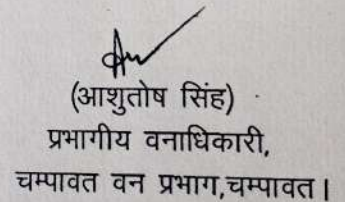 (आशुतोष सिंह)
प्रभागीय वनाधिकारी,
चम्पावत वन प्रभाग,चम्पावत।